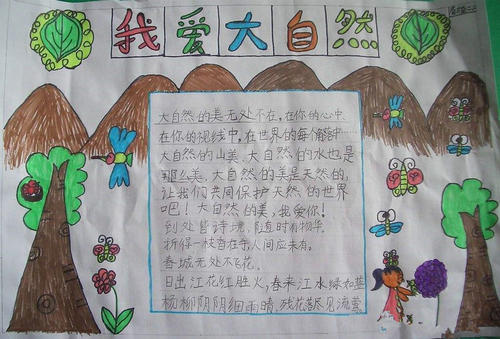 我爱大自然
大自然的美无处不在，在你的心中、
在你的视线中，在世界的每个角落中……
大自然的山美、大自然的水也是
那么美，大自然的美是天然的，
让我们共同保护天然的世界
吧！大自然的美，我爱你！
到处皆诗境，随时有物华。
折得一枝香在手，人间应未有。
春城无处不飞花。
日出江花红胜火，春来江水绿如蓝
杨柳阴阴细雨晴，残花落尽见流莺